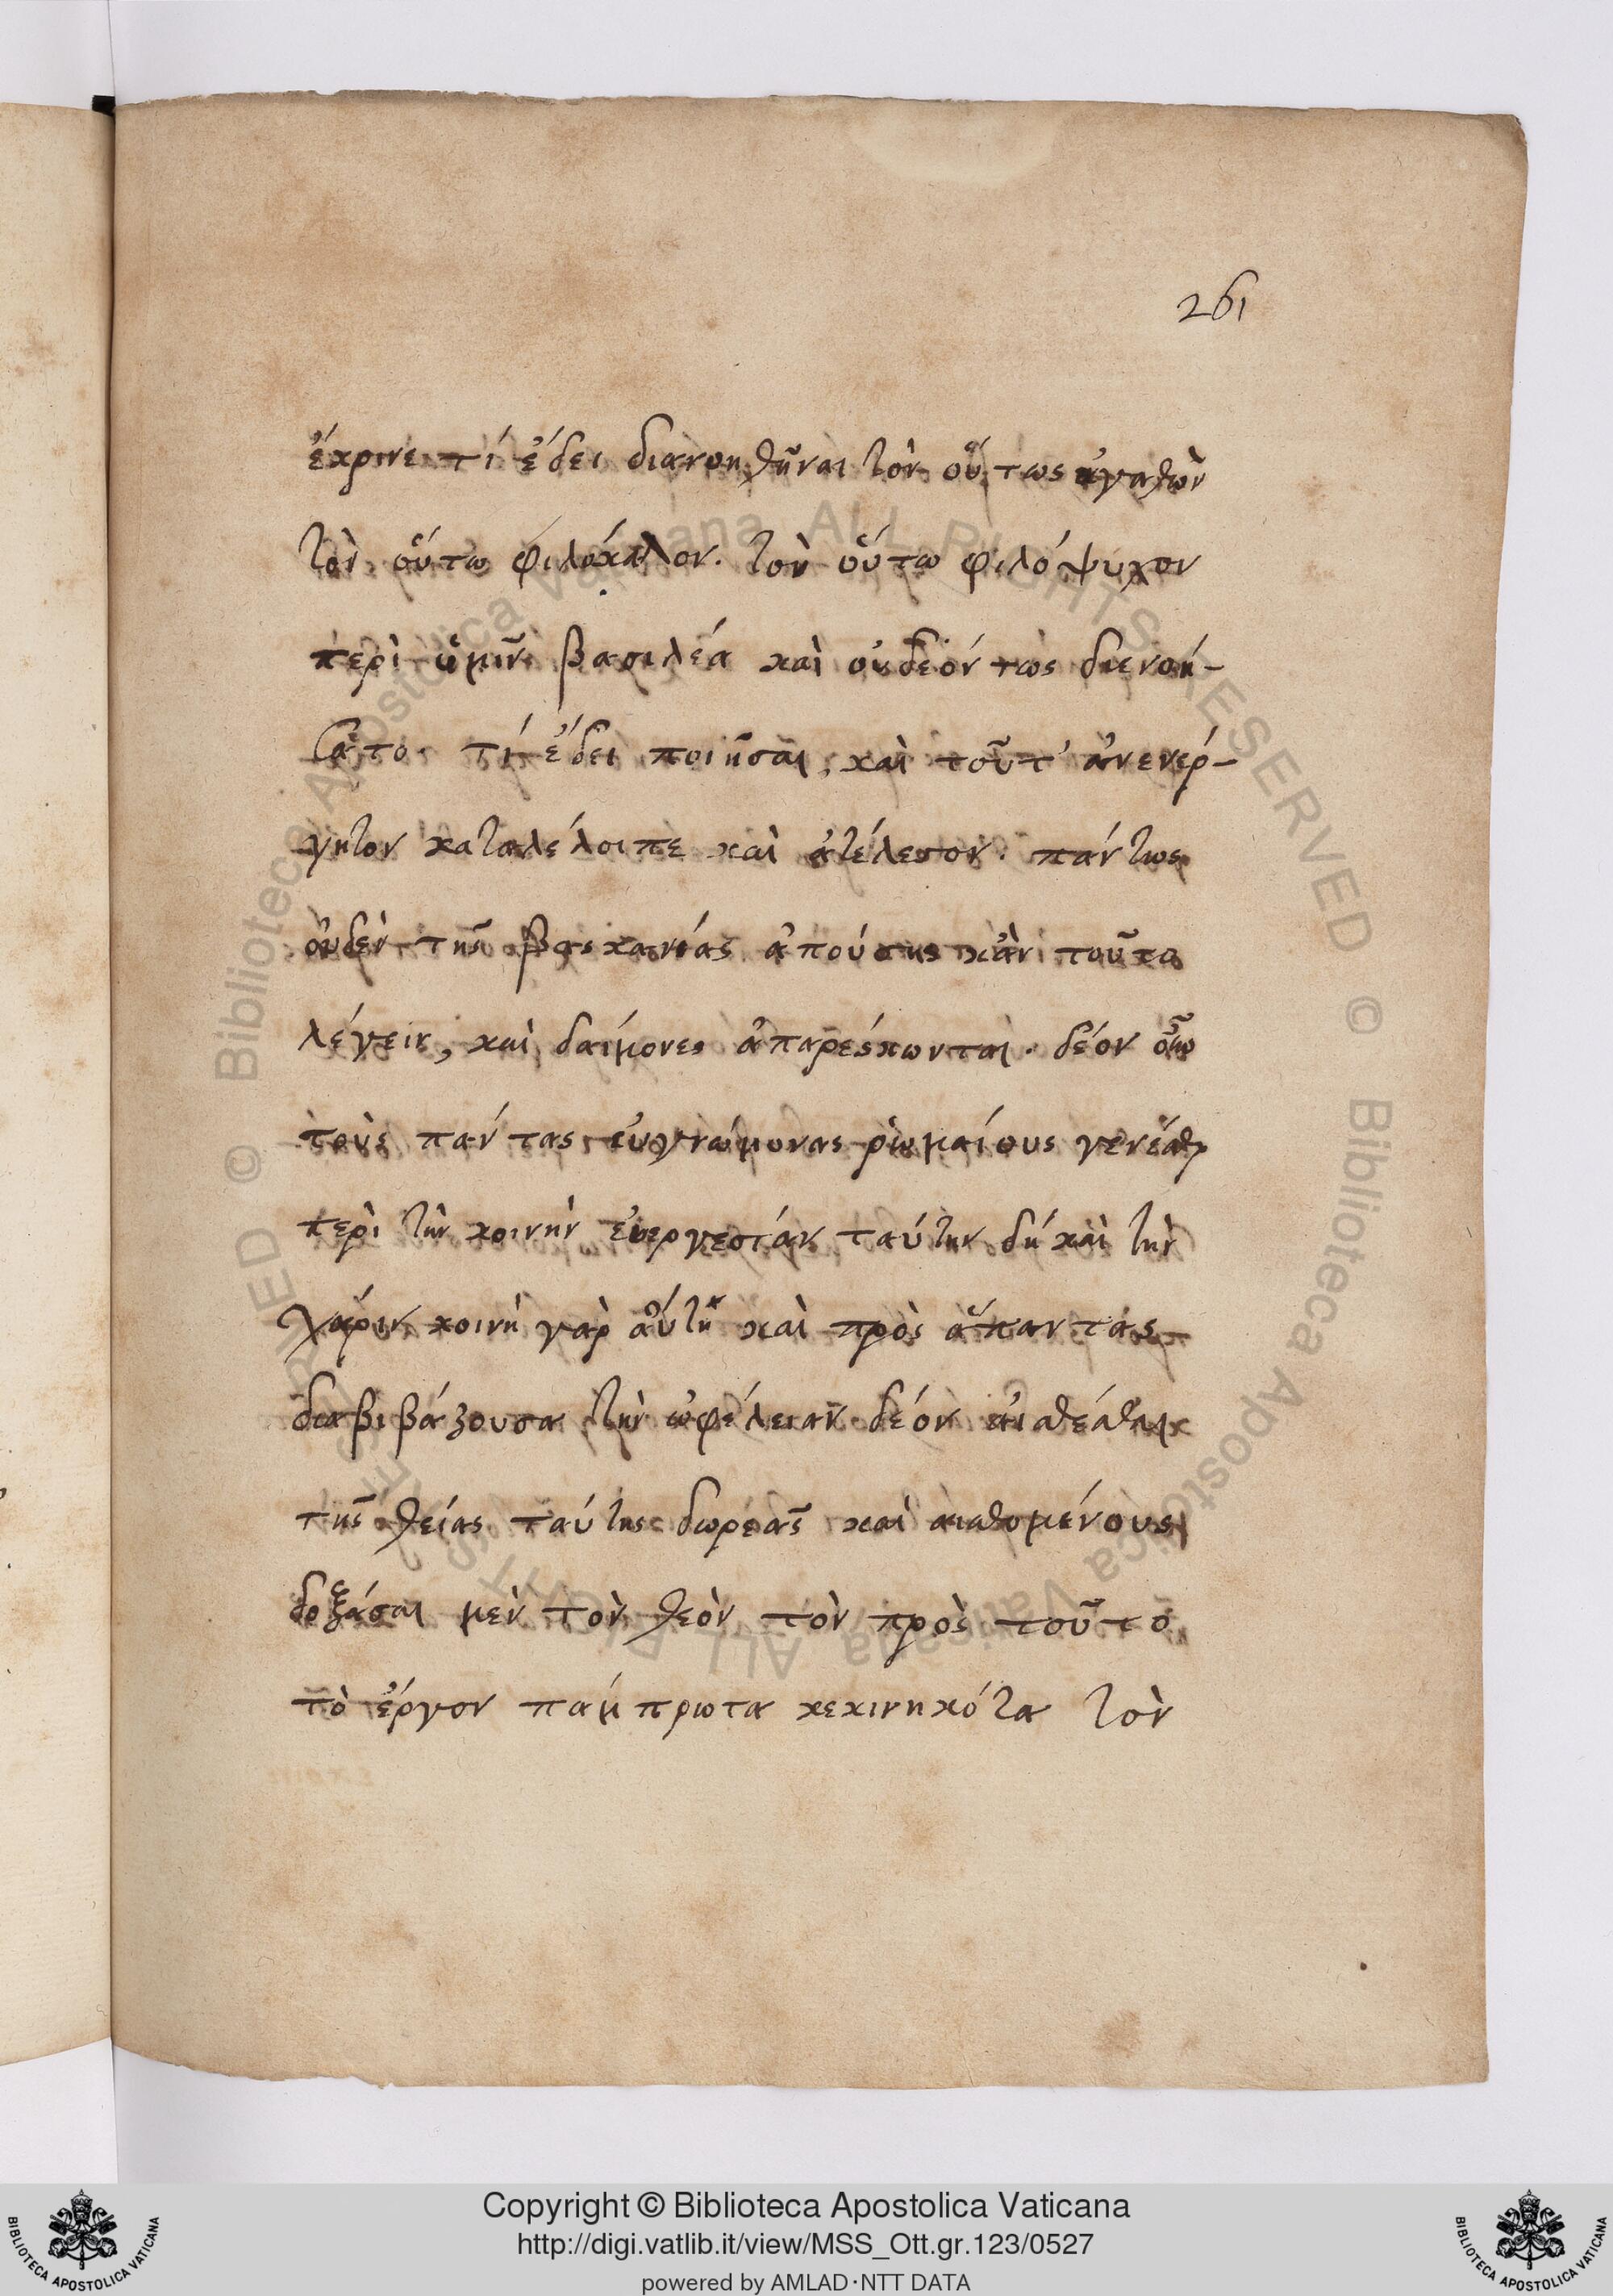 261
ἔκρινε τί ἔδει διανοηθῆναι τὸν οὕτως ἀγαθὸν
τὸν οὕτω φιλόκαλον. τὸν οὕτω φιλόψυχον
περὶ ὑμῖν βασιλέα καὶ οὐ δεόντως διενοή-
σατο. τί ἔδει ποιῆσαι, καὶ τοῦτ' ἀνενέρ-
γητον καταλέλοιπε καὶ ἀτέλεστον. πάντως
οὐδὲν τῆς βασκανίας ἀπούσης κἂν τοῦτο
λέγειν, καὶ δαίμονες ἀπαρέσκωνται. δέον
τοὺς πάντας εὐγνώμονας ῥωμαίους γενέσθαι
περὶ τὴν κοινὴν εὐεργεσίαν ταύτην δὴ καὶ τὴν
χάριν κοινὴ γὰρ αὕτη καὶ πρὸς ἅπαντας
διαβιβάζουσα τὴν ὠφέλειαν. δέον αἰσθέσθαι
τῆς θείας ταύτης δωρεᾶς καὶ αἰσθομένους
δοξάσαι μὲν τὸν θεὸν τὸν πρὸς τοῦτο
τὸ ἔργον πάμπρωτα κεκινηκότα τὸν
© Biblioteca Apostolica Vaticana ALL RIGHTS RESERVED
© Biblioteca Apostolica Vaticana ALL RIGHTS RESERVED
BIBLIOTECA APOSTOLICA VATICANA
Copyright © Biblioteca Apostolica Vaticana
http://digi.vatlib.it/view/MSS_Ott.gr.123/0527
powered by AMLAD·NTT DATA
BIBLIOTECA APOSTOLICA VATICANA